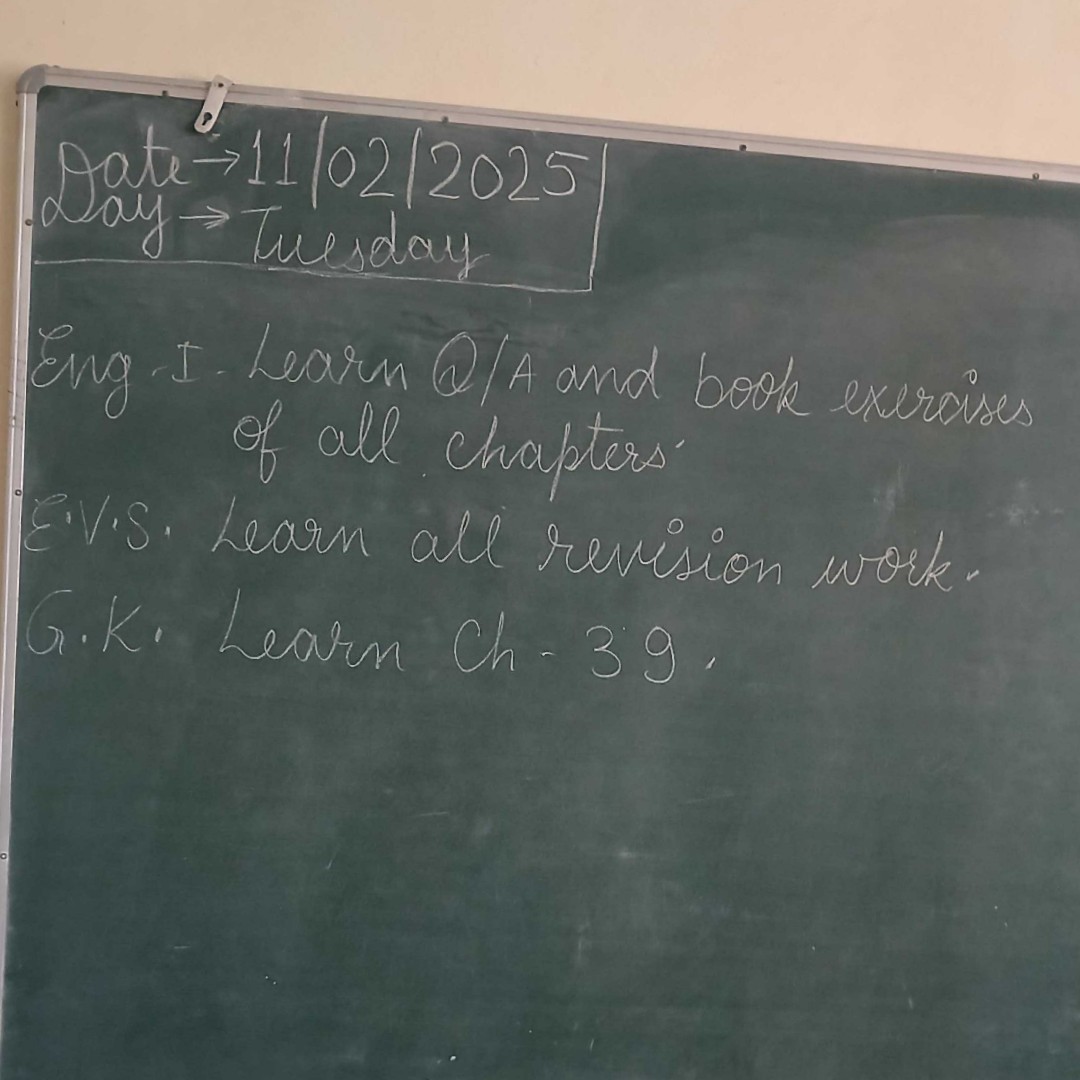 Date → 11/02/2025
Day → Tuesday
Eng - I - Learn Q/A and book exercises
of all chapters.
E.V.S. Learn all revision work.
G.K. Learn Ch - 39.